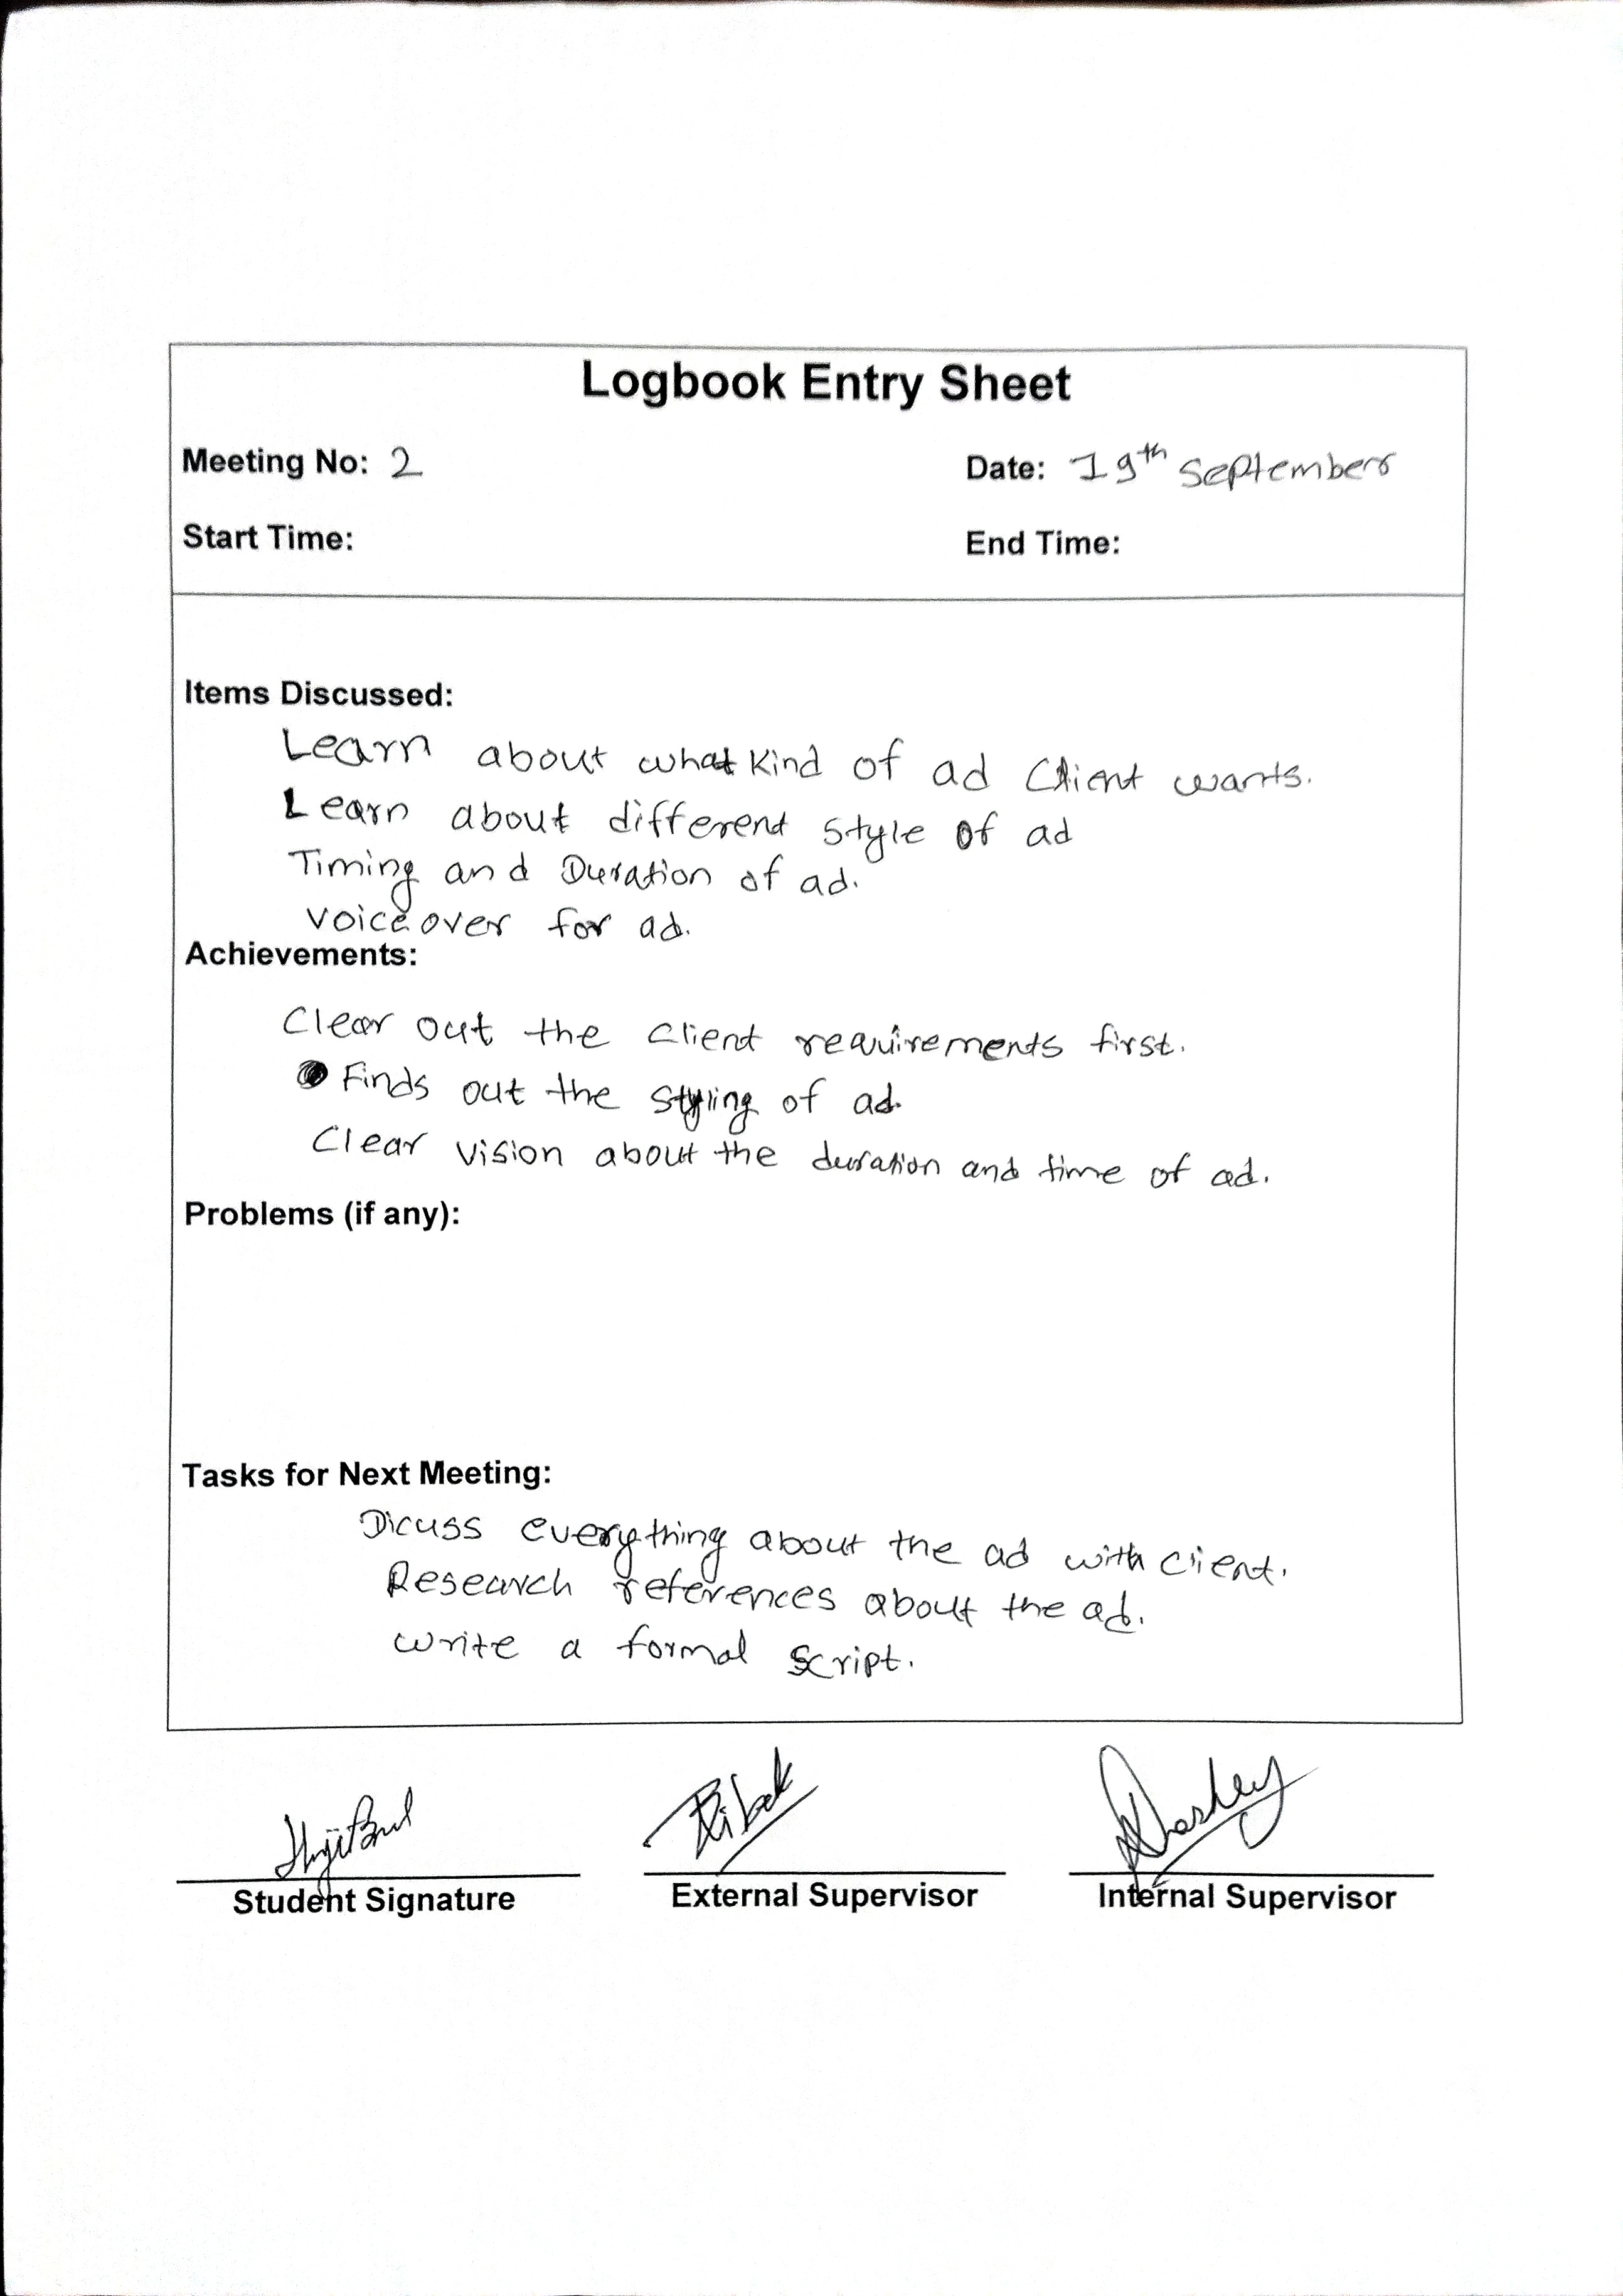 Logbook Entry Sheet
Meeting No: 2 Date: 19th September
Start Time: End Time:
Items Discussed:
Learn about what kind of ad Client wants.
Learn about different style of ad
Timing and Duration of ad.
voice over for ad.
Achievements:
Clear out the client requirements first.
Finds out the styling of ad.
Clear vision about the duration and time of ad.
Problems (if any):
Tasks for Next Meeting:
Dicuss everything about the ad with client.
Research references about the ad.
write a formal script.
Student Signature External Supervisor Internal Supervisor